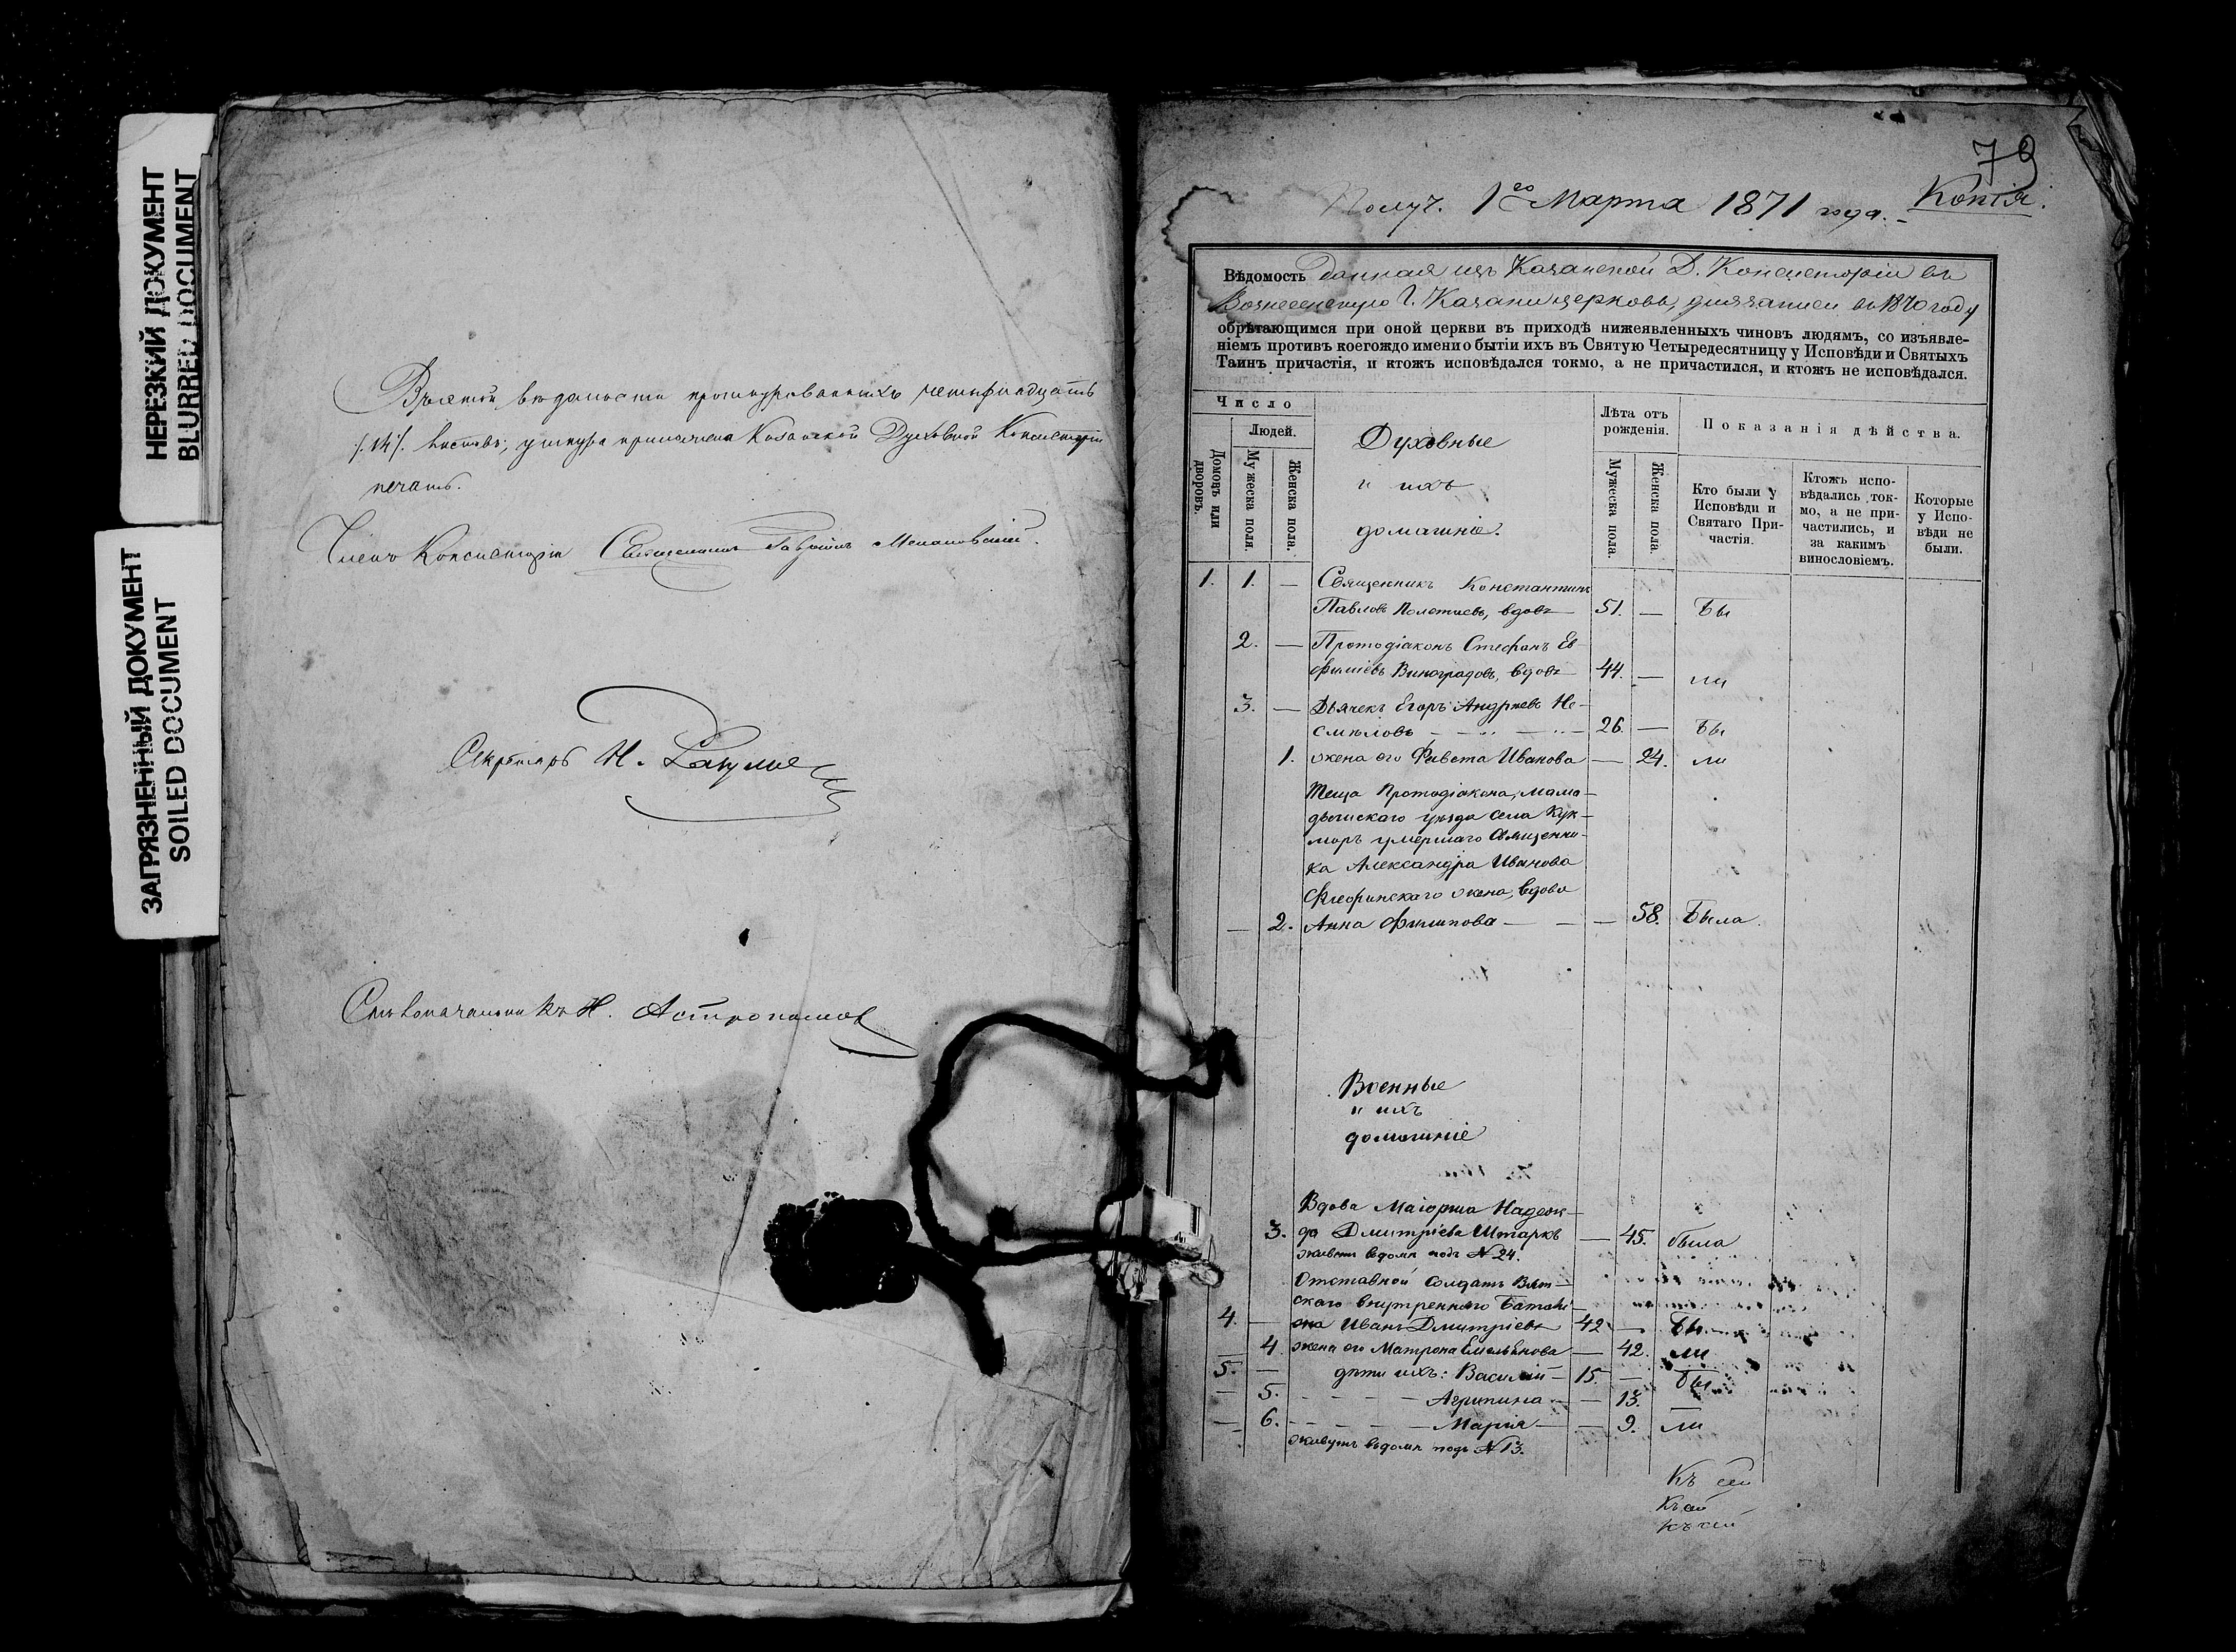 НЕРЕЗКИЙ ДОКУМЕНТ
BLURRED DOCUMENT
ЗАГРЯЗНЕННЫЙ ДОКУМЕНТ
SOILED DOCUMENT
Въ этой вѣдомости прошнурованныхъ четырнадцать
/.14/. листовъ; у шнура приложена Казанской Духовной Консисторіи
печать.
Членъ Консисторіи Священникъ Гавріилъ
Секретарь Н.
Столоначальникъ Н.
79
Получ. 1го Марта 1871 года.
Копія.
Вѣдомость данная изъ Казанской Д. Консисторіи въ
Вознесенскую г. Казани церковь, для записи въ 1870 году
обрѣтающимся при оной церкви въ приходѣ нижеявленныхъ чиновъ людямъ, со изъявле-
ніемъ противъ коегождо имени о бытіи ихъ въ Святую Четыредесятницу у Исповѣди и Святыхъ
Таинъ причастія, и ктожъ исповѣдался токмо, а не причастился, и ктожъ не исповѣдался.
Число
Людей.
Домовъ или дворовъ.
Мужеска пола.
Женска пола.
Духовные
и ихъ
домашніе.
Лѣта отъ рожденія.
Мужеска пола.
Женска пола.
Показанія дѣйства.
Кто были у Исповѣди и Святаго Причастія.
Ктожъ исповѣдались токмо, а не причастились, и за какимъ винословіемъ.
Которые у Исповѣди не были.
1. 1. — Священникъ Константинъ
Павловъ Полетаевъ, вдовъ 51. — Бы
2. — Протодіаконъ Стефанъ Ев-
фиміевъ Виноградовъ, вдовъ 44. — ли
3. — Дьячекъ Егоръ Андреевъ Не-
смѣловъ 26. — Бы
1. жена его Фавста Иванова — 24. ли
Теща Протодіакона, Мама-
дышскаго уѣзда села Кук-
моръ умершаго Священни-
ка Александра Иванова
жена, вдова
— 2. Анна Филипова — — 58. Была.
Военные
и ихъ
домашніе
Вдова Маіорша Надеж-
3. да Дмитріева Штаркъ — 45. была
живетъ въ домѣ подъ № 24.
Отставной солдатъ Вят-
скаго внутренняго Баталі-
4. — она Иванъ Дмитріевъ 42 — Бы
— 4. жена его Матрона Емельянова — 42. ли
5. — дѣти ихъ: Василій — 15. — бы
— 5. — Агрипина — 13. —
— 6. — Марія — 9. ли
живутъ въ домѣ подъ № 13.
Къ сей
Къ сей
Къ сей